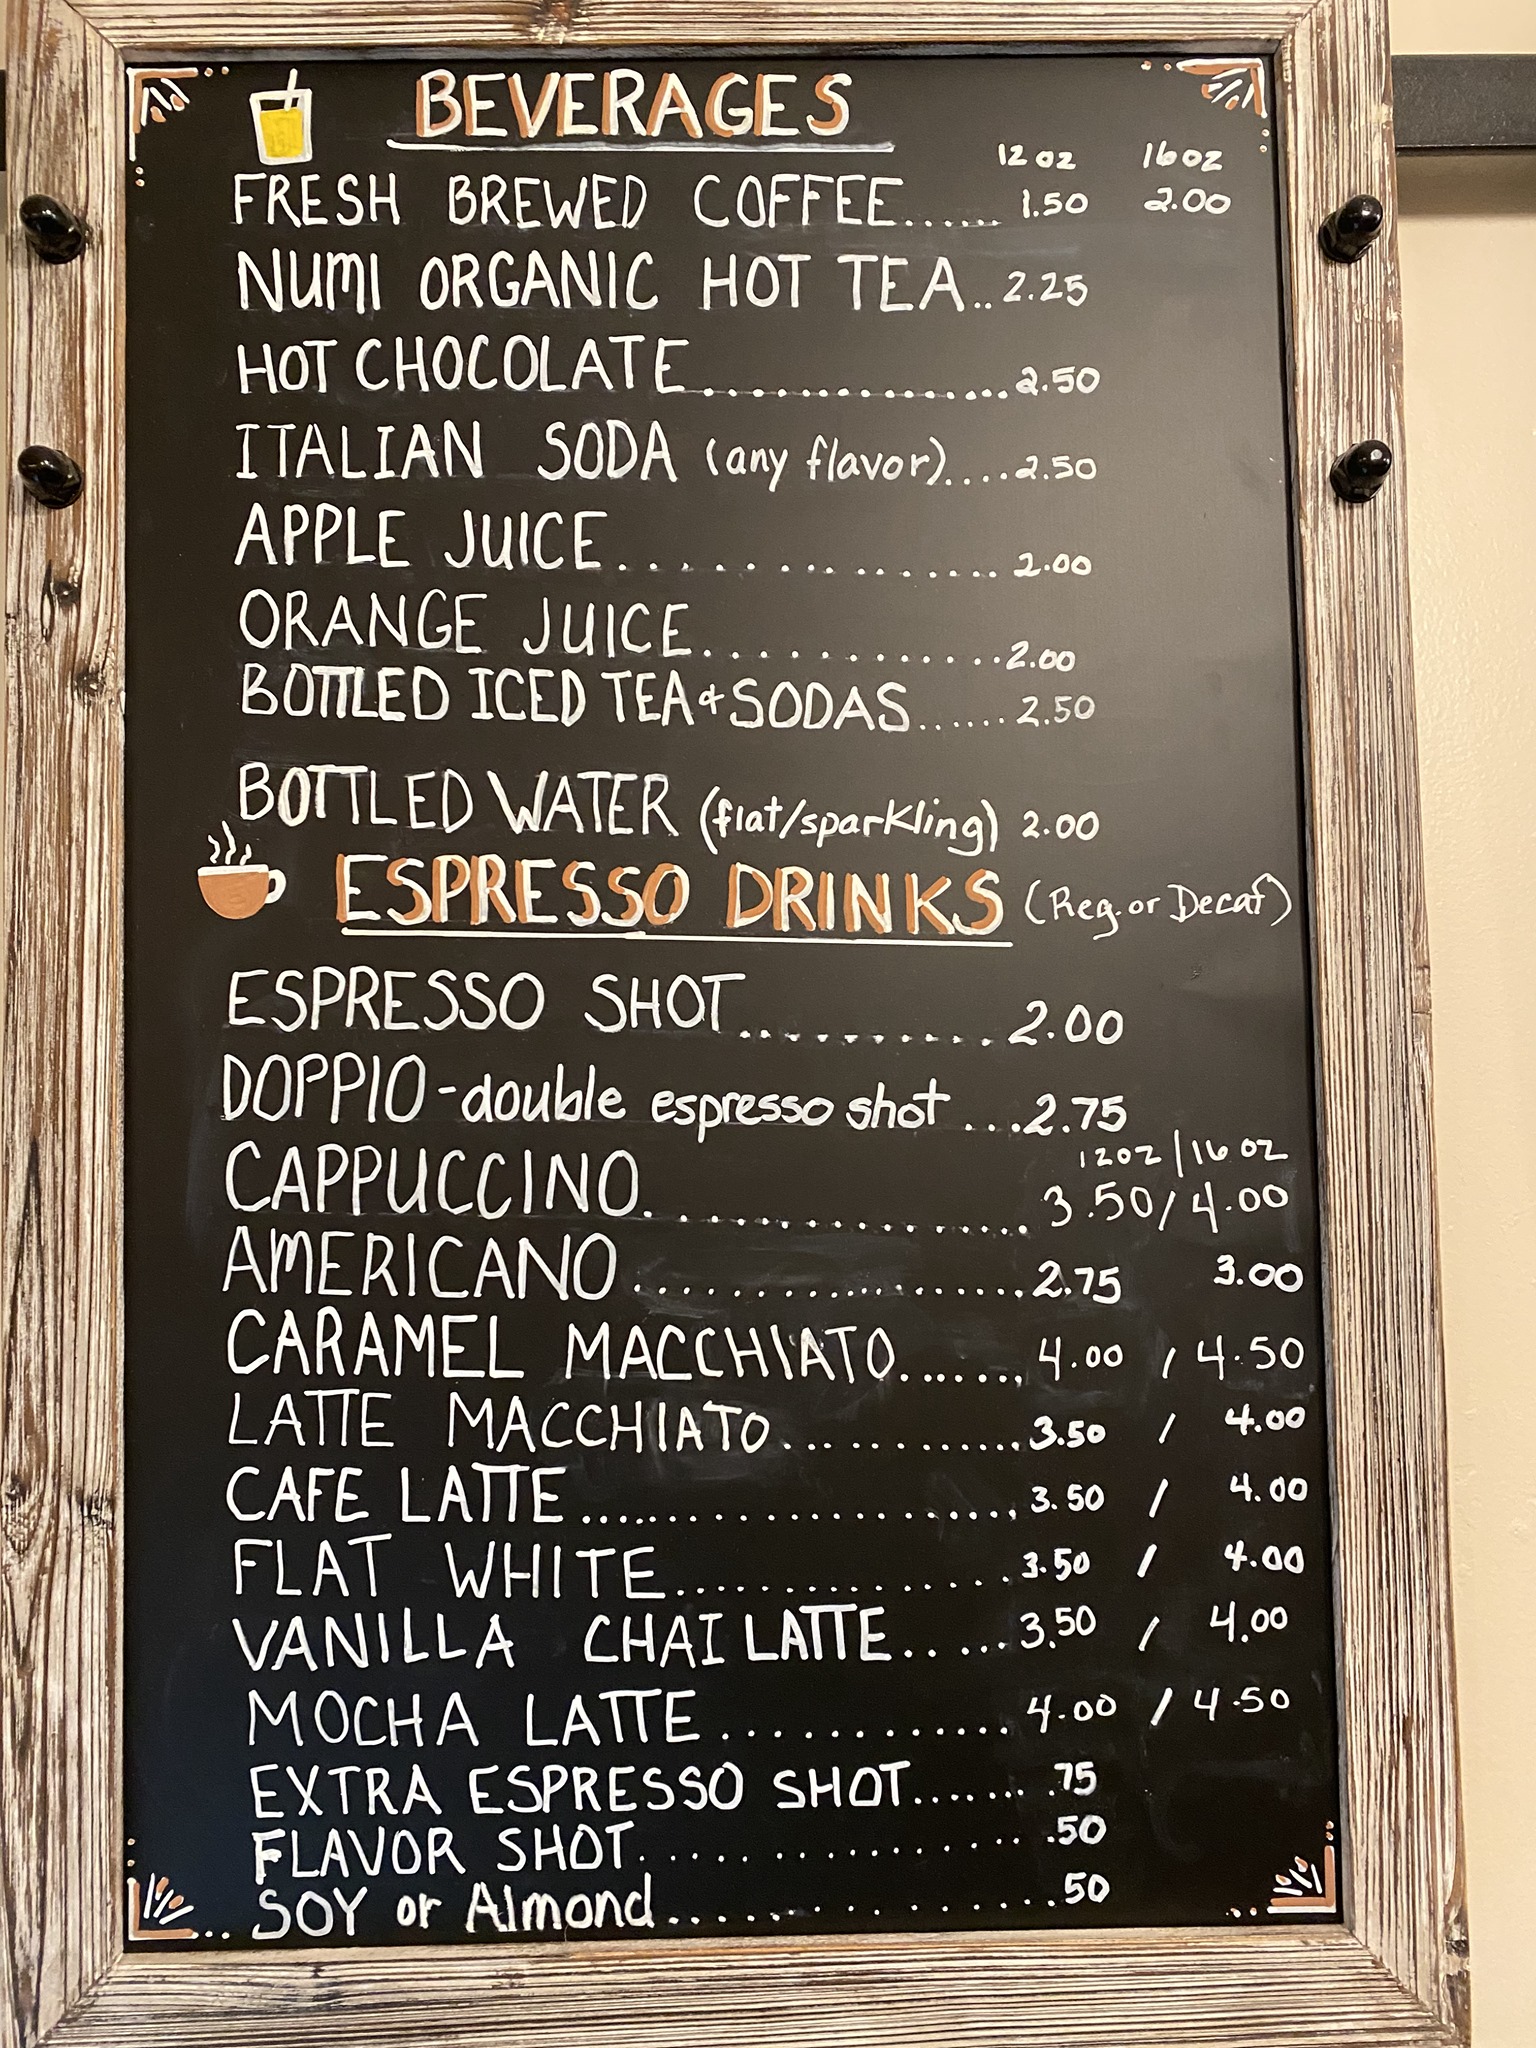 BEVERAGES
12 oz 16 oz
FRESH BREWED COFFEE...... 1.50 2.00
NUMI ORGANIC HOT TEA..2.25
HOT CHOCOLATE................2.50
ITALIAN SODA (any flavor)....2.50
APPLE JUICE............... 2.00
ORANGE JUICE..............2.00
BOTTLED ICED TEA & SODAS......2.50
BOTTLED WATER (flat/sparkling) 2.00
ESPRESSO DRINKS (Reg. or Decaf)
ESPRESSO SHOT.......... 2.00
DOPPIO - double espresso shot ...2.75
12oz / 16 oz
CAPPUCCINO............... 3.50 / 4.00
AMERICANO...................2.75 3.00
CARAMEL MACCHIATO...... 4.00 / 4.50
LATTE MACCHIATO.............3.50 / 4.00
CAFE LATTE..................... 3.50 / 4.00
FLAT WHITE................3.50 / 4.00
VANILLA CHAI LATTE......3.50 / 4.00
MOCHA LATTE............ 4.00 / 4.50
EXTRA ESPRESSO SHOT....... .75
FLAVOR SHOT.............. .50
SOY or Almond............. .50